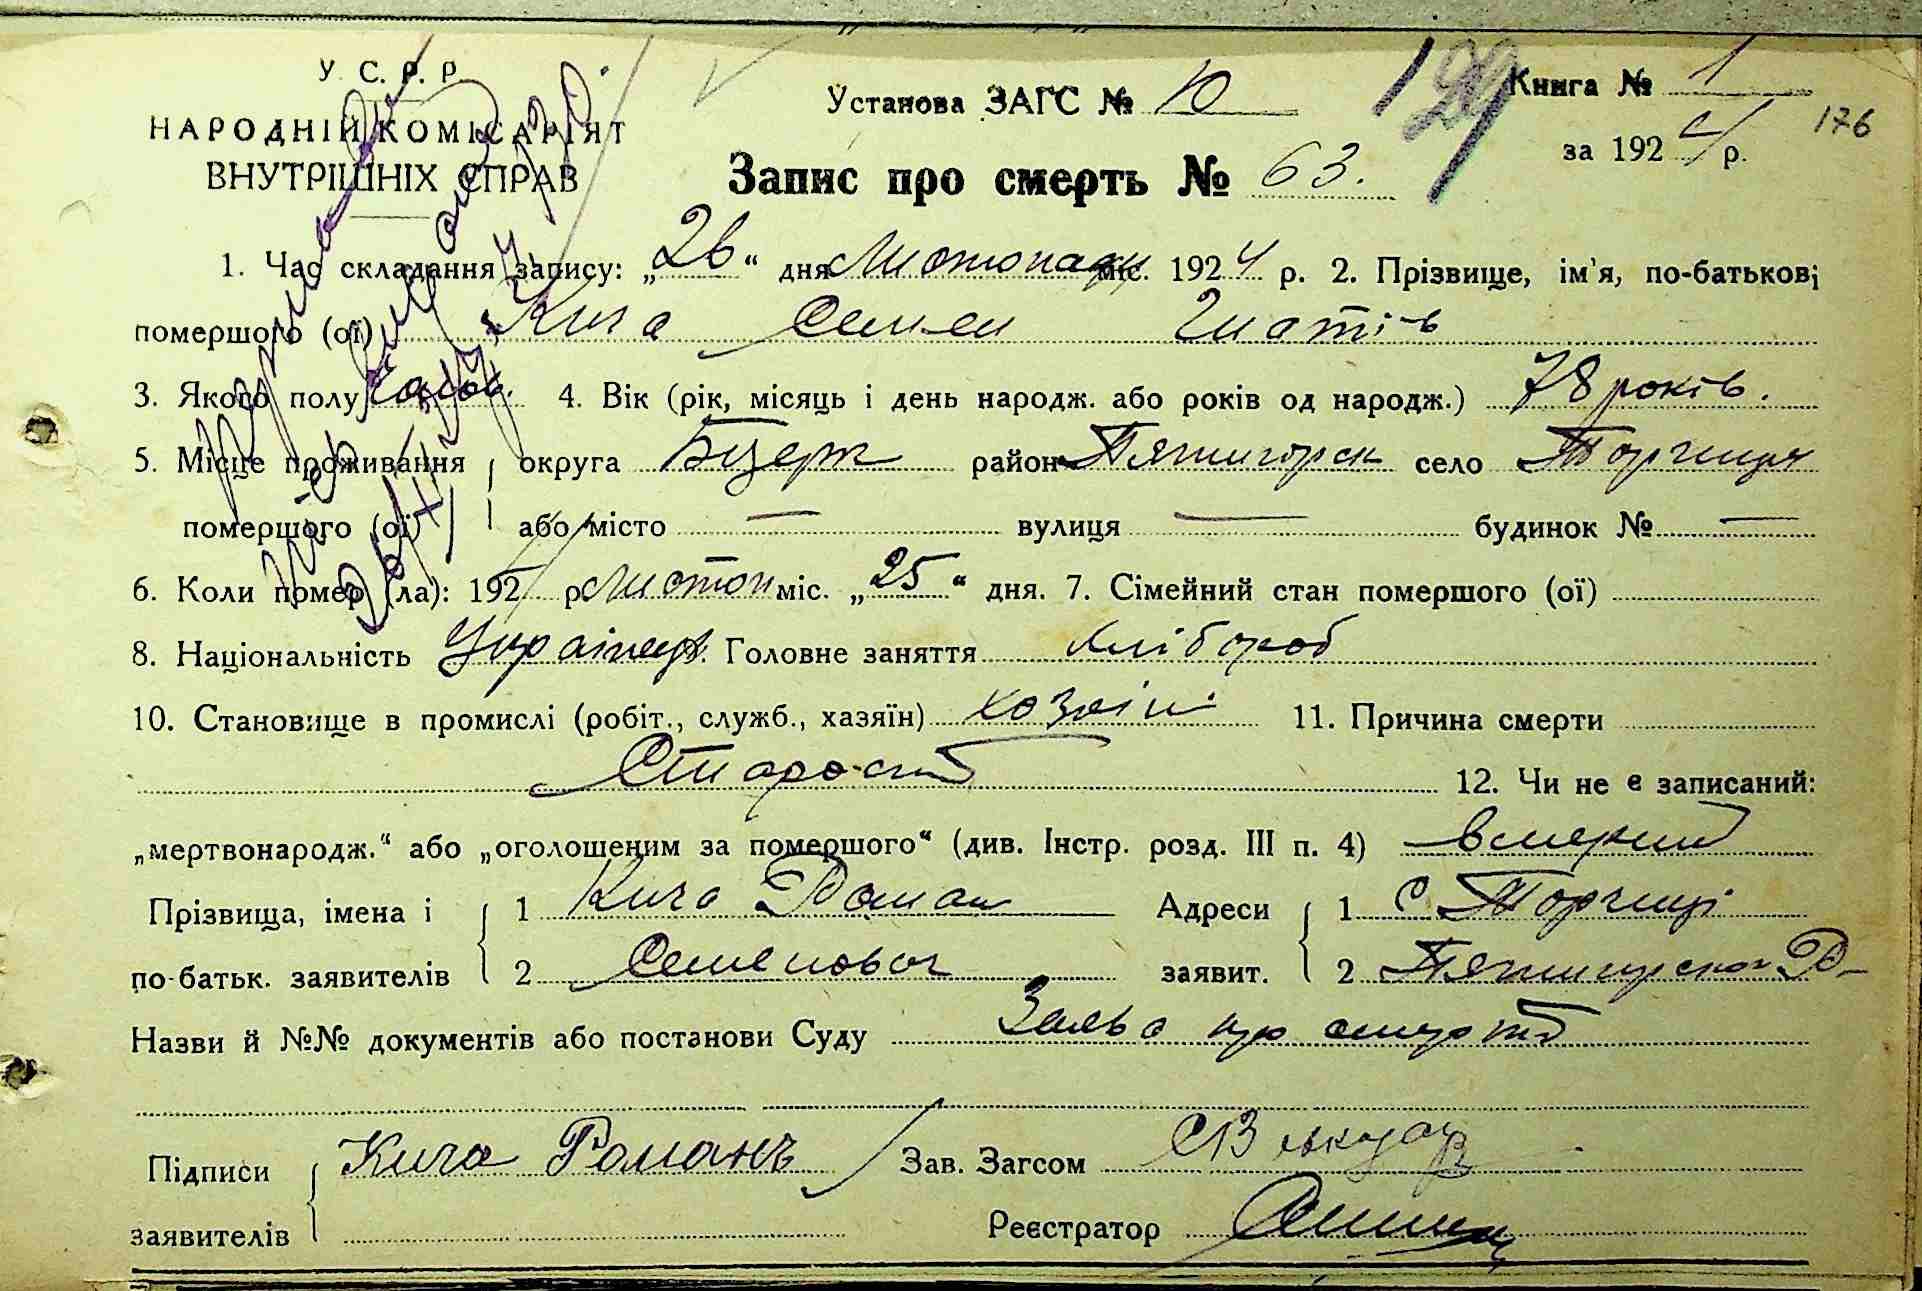 У. С. Р. Р.
НАРОДНІЙ КОМІСАРІЯТ
ВНУТРІШНІХ СПРАВ
Установа ЗАГС № 10
129
Книга № 1
за 1924 р.
176
Запис про смерть № 63.
1. Час складання запису: „26“ дня Листопада міс. 1924 р. 2. Прізвище, ім'я, по-батькові
помершого (ої) Кича Семен Гнатів
3. Якого полу 4. Вік (рік, місяць і день народж. або років од народж.) 78 років.
5. Місце проживання округа Бцерк район Пятигорск село Торчиця
помершого (ої) або місто — вулиця — будинок № —
6. Коли помер (ла): 1924 р. Листоп міс. „25“ дня. 7. Сімейний стан помершого (ої)
8. Національність Українец. Головне заняття хлібороб
10. Становище в промислі (робіт., служб., хазяїн) хозяїн 11. Причина смерти
Старості 12. Чи не є записаний:
„мертвонародж.“ або „оголошеним за помершого“ (див. Інстр. розд. III п. 4) вмерший
Прізвища, імена і 1 Кича Роман Адреси 1 С. Торчиці
по-батьк. заявителів 2 Семенович заявит. 2 Пятигорског Р-
Назви й №№ документів або постанови Суду Заява про смерть
Підписи Кича Романъ Зав. Загсом
заявителів Реєстратор